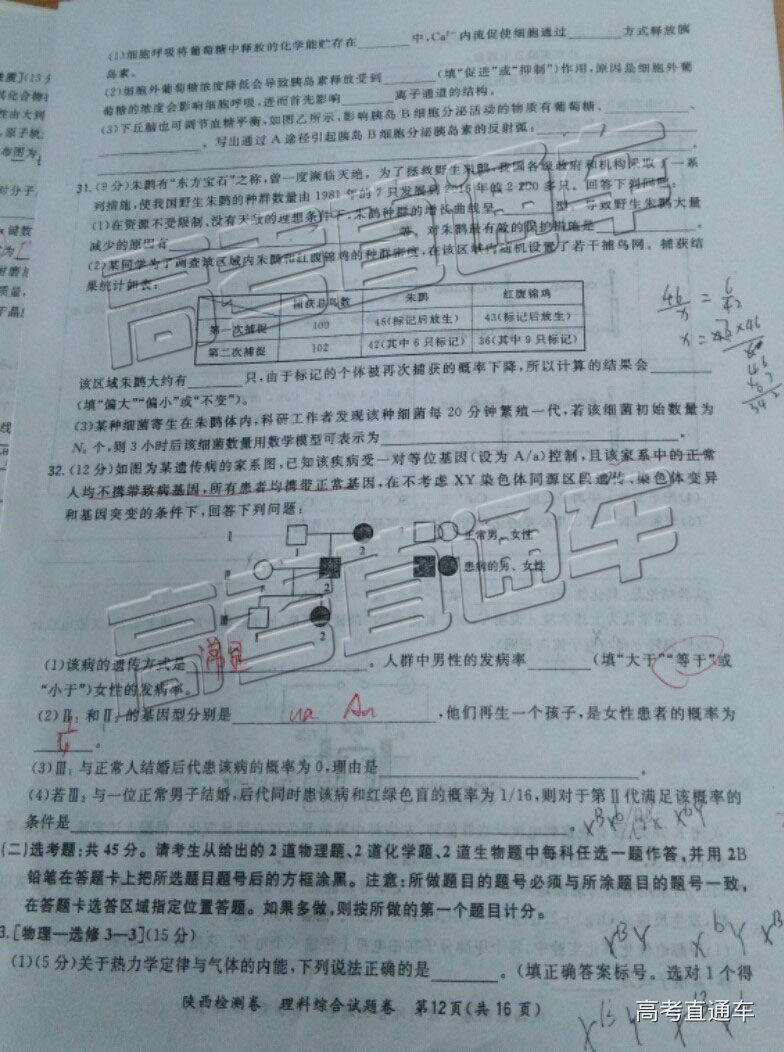 (1)细胞呼吸将葡萄糖中释放的化学能贮存在________中,Ca²⁺内流促使细胞通过________方式释放胰
岛素。
(2)细胞外葡萄糖浓度降低会导致胰岛素释放受到________(填"促进"或"抑制")作用,原因是细胞外葡
萄糖的浓度会影响细胞呼吸,进而首先影响________离子通道的结构。
(3)下丘脑也可调节血糖平衡,如图乙所示,影响胰岛B细胞分泌活动的物质有葡萄糖、________、
________。写出通过A途径引起胰岛B细胞分泌胰岛素的反射弧:________
________。
31.(9分)朱鹮有"东方宝石"之称,曾一度濒临灭绝。为了拯救野生朱鹮,我国各级政府和机构采取了一系
列措施,使我国野生朱鹮的种群数量由1981年的7只发展到2016年的2 200多只。回答下列问题:
(1)在资源不受限制、没有天敌的理想条件下,朱鹮种群的增长曲线呈____型。导致野生朱鹮大量
减少的原因有________等,对朱鹮最有效的保护措施是________。
(2)某同学为了调查该区域内朱鹮和红腹锦鸡的种群密度,在该区域内随机设置了若干捕鸟网。捕获结
果统计如表:
捕获总鸟数 朱鹮 红腹锦鸡
第一次捕捉 100 46(标记后放生) 43(标记后放生)
第二次捕捉 102 42(其中6只标记) 36(其中9只标记)
该区域朱鹮大约有________只,由于标记的个体被再次捕获的概率下降,所以计算的结果会________
(填"偏大""偏小"或"不变")。
(3)某种细菌寄生在朱鹮体内,科研工作者发现该种细菌每20分钟繁殖一代,若该细菌初始数量为
N₀个,则3小时后该细菌数量用数学模型可表示为________。
32.(12分)如图为某遗传病的家系图,已知该疾病受一对等位基因(设为A/a)控制,且该家系中的正常
人均不携带致病基因,所有患者均携带正常基因,在不考虑XY染色体同源区段遗传、染色体变异
和基因突变的条件下,回答下列问题:
Ⅰ 1 2
正常男、女性
Ⅱ 1 2
患病的男、女性
Ⅲ 1 2
(1)该病的遗传方式是 常显 。人群中男性的发病率________(填"大于""等于"或
"小于")女性的发病率。
(2)Ⅱ₁和Ⅱ₂的基因型分别是 aa Aa ,他们再生一个孩子,是女性患者的概率为
1/4 。
(3)Ⅲ₁与正常人结婚后代患该病的概率为0,理由是________。
(4)若Ⅲ₂与一位正常男子结婚,后代同时患该病和红绿色盲的概率为1/16,则对于第Ⅱ代满足该概率的
条件是________。
(二)选考题:共45分。请考生从给出的2道物理题、2道化学题、2道生物题中每科任选一题作答,并用2B
铅笔在答题卡上把所选题目题号后的方框涂黑。注意:所做题目的题号必须与所涂题目的题号一致,
在答题卡选答区域指定位置答题。如果多做,则按所做的第一个题目计分。
3.[物理—选修3—3](15分)
(1)(5分)关于热力学定律与气体的内能,下列说法正确的是________。(填正确答案标号。选对1个得
陕西检测卷 理科综合试题卷 第12页(共16页)
高考直通车